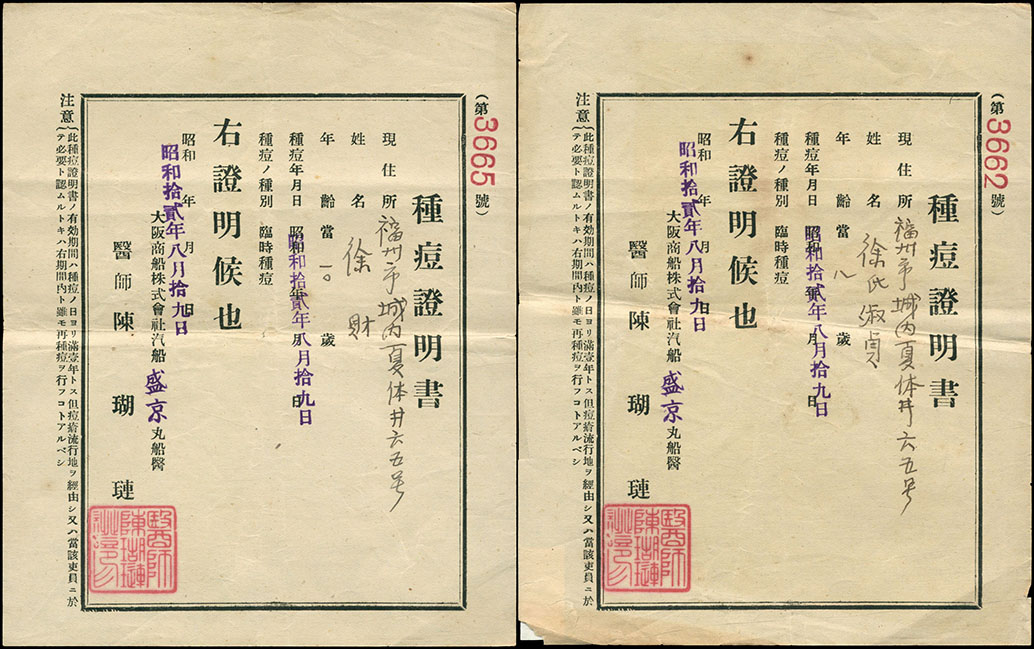 （第3662號）
種痘證明書
現住所 福州市城内夏体井六五号
姓名 徐氏淑貞
年齡當 八 歲
種痘年月日 昭和 年 月 日 昭和拾貳年八月拾九日
種痘ノ種別 臨時種痘
右證明候也
昭和 年 月 日 昭和拾貳年八月拾九日
大阪商船株式會社汽船 盛京 丸船醫
醫師 陳瑚璉
醫師陳瑚璉
注意 此種痘證明書ノ有効期間ハ種痘ノ日ヨリ滿壹年トス但痘瘡流行地ヲ經由シ又ハ當該吏員ニ於
テ必要ト認ムルトキハ右期間内ト雖モ再種痘ヲ行フコトアルベシ
（第3665號）
種痘證明書
現住所 福州市城内夏体井六五号
姓名 徐財
年齡當 一〇 歲
種痘年月日 昭和 年 月 日 昭和拾貳年八月拾九日
種痘ノ種別 臨時種痘
右證明候也
昭和 年 月 日 昭和拾貳年八月拾九日
大阪商船株式會社汽船 盛京 丸船醫
醫師 陳瑚璉
醫師陳瑚璉
注意 此種痘證明書ノ有効期間ハ種痘ノ日ヨリ滿壹年トス但痘瘡流行地ヲ經由シ又ハ當該吏員ニ於
テ必要ト認ムルトキハ右期間内ト雖モ再種痘ヲ行フコトアルベシ